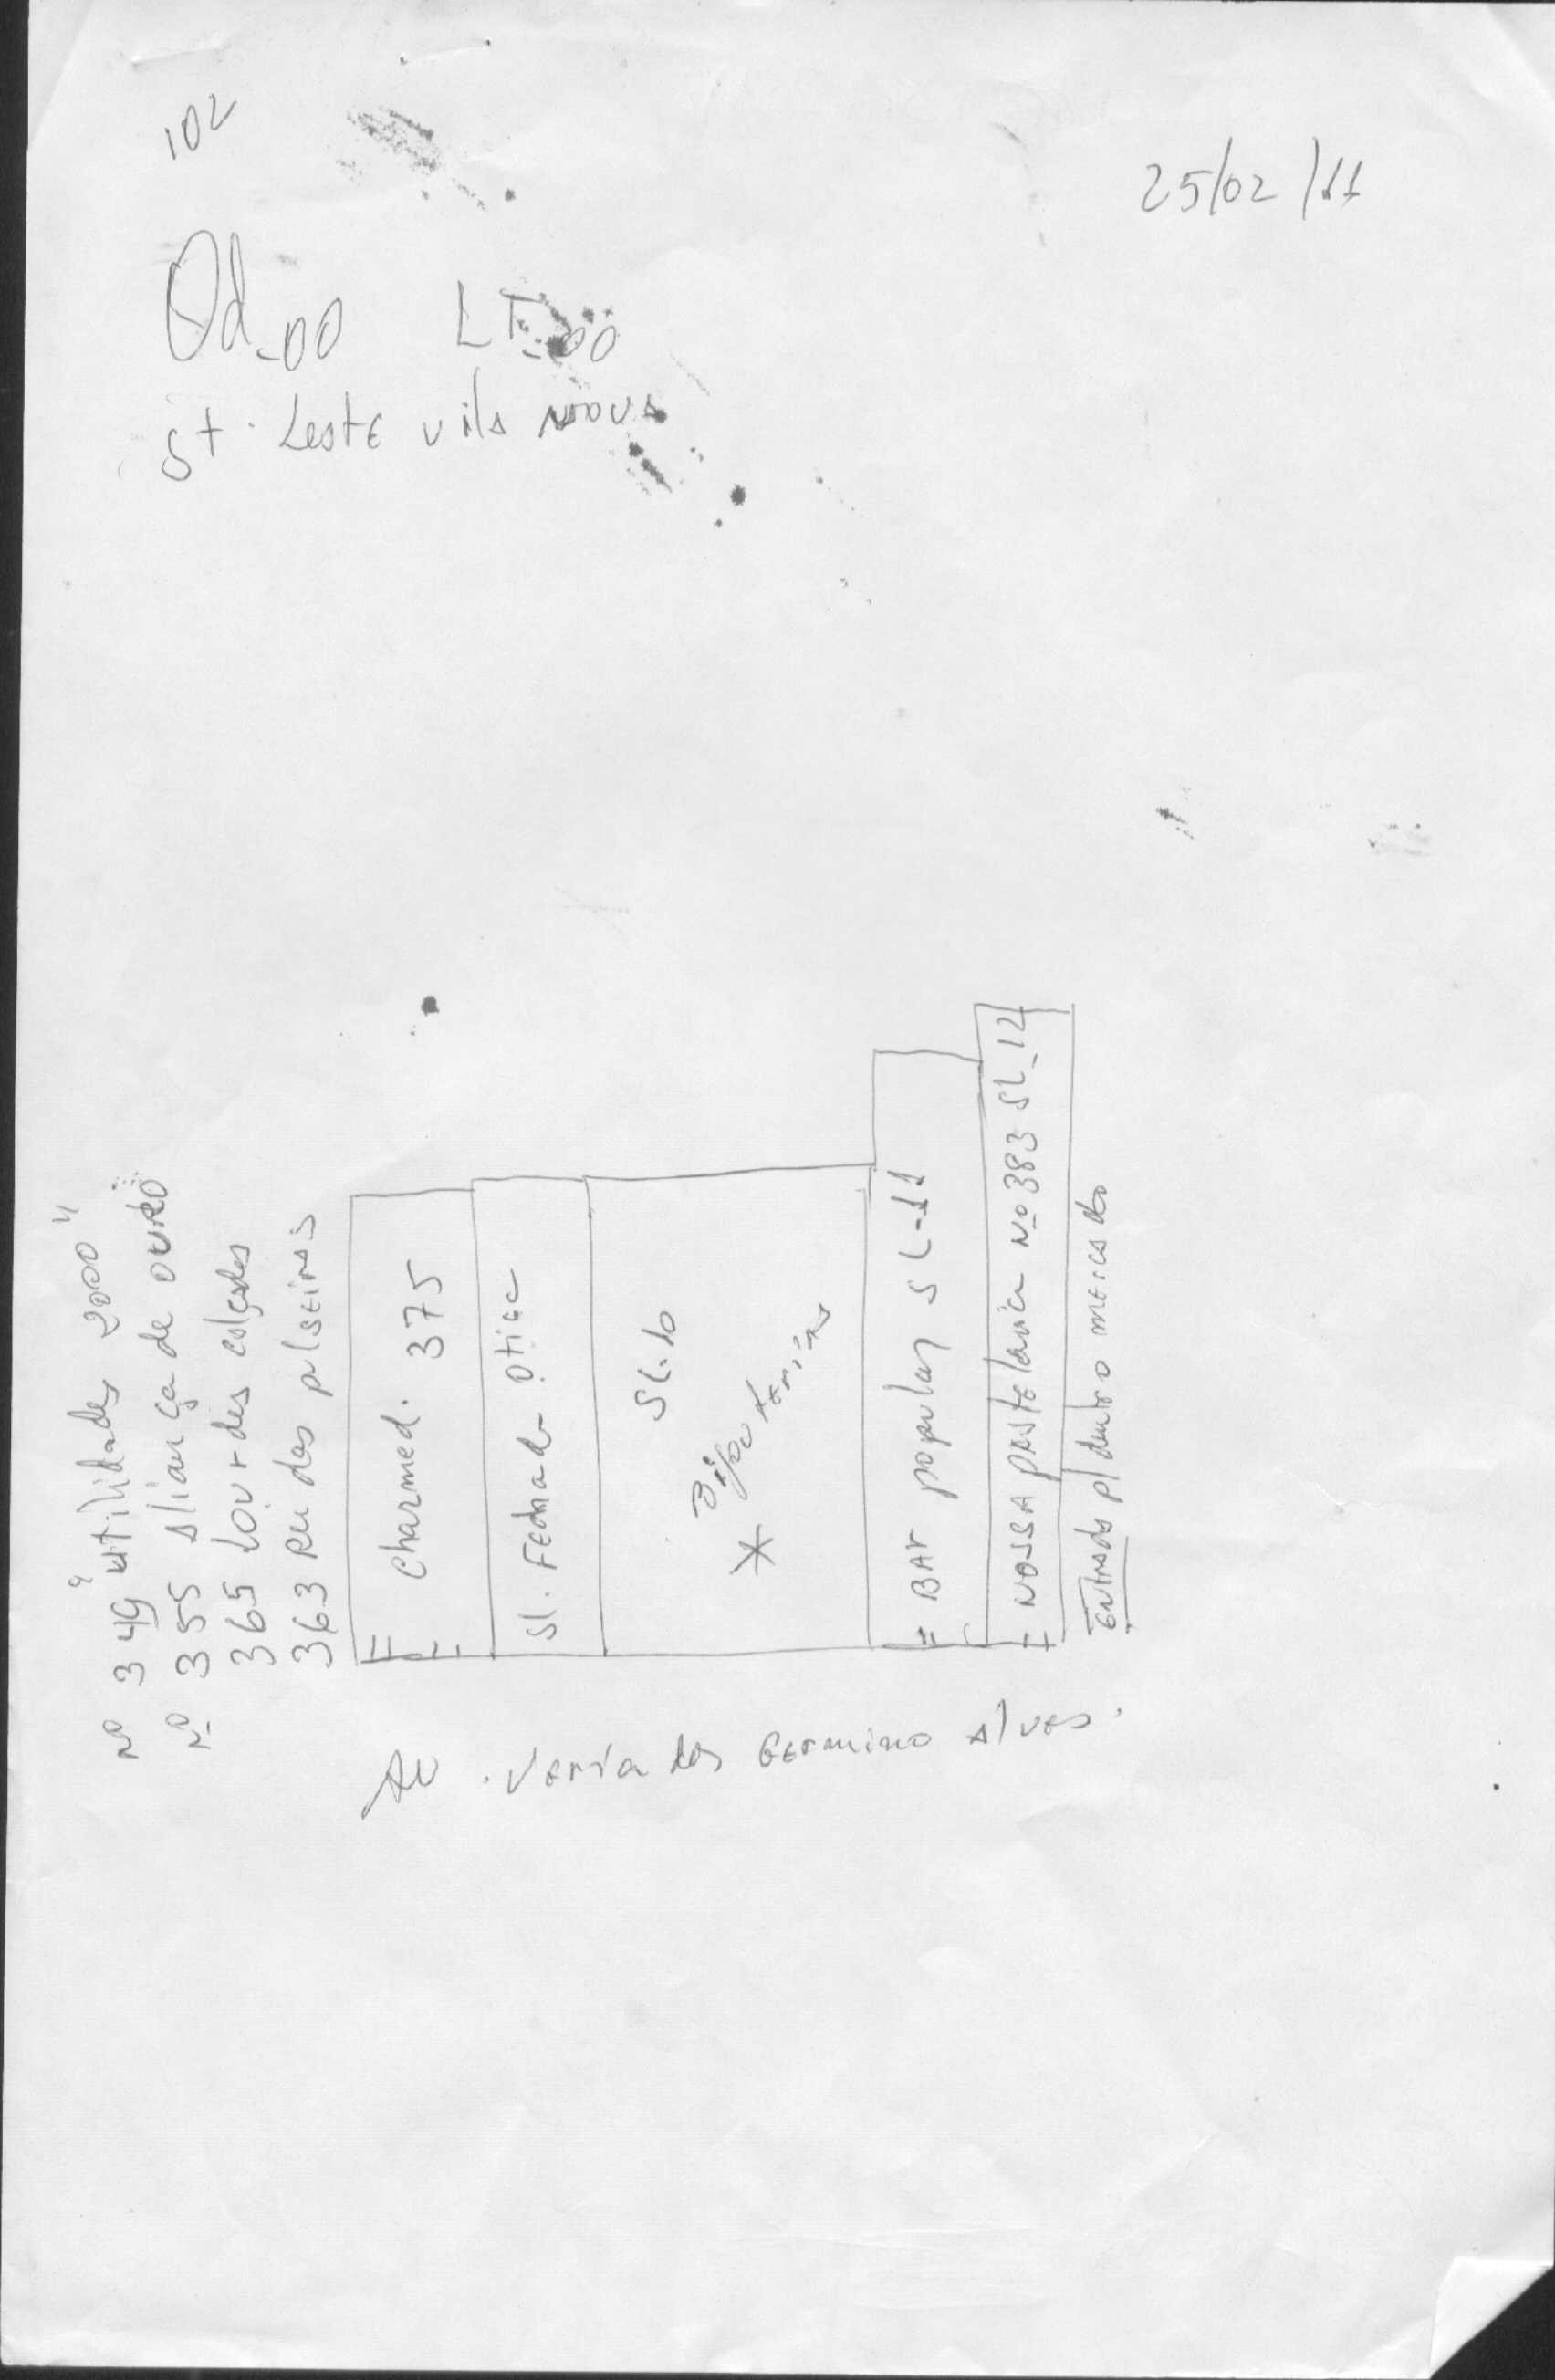 102
25/02/11
Qd-00 LT-00
St. Leste vila Nova
Nº 349 "utilidades 2000"
Nº 355 aliança de ouro
365 Lourdes calçados
363 Rei das pulseiras
Charmed. 375
Sl. Fechada otica
SL.10
* Bijouterias
BAr popular SL-11
NOSSA pastelaria Nº 383 SL-12
Entrada p/ dentro mercado
Av. Veriador Germino Alves.